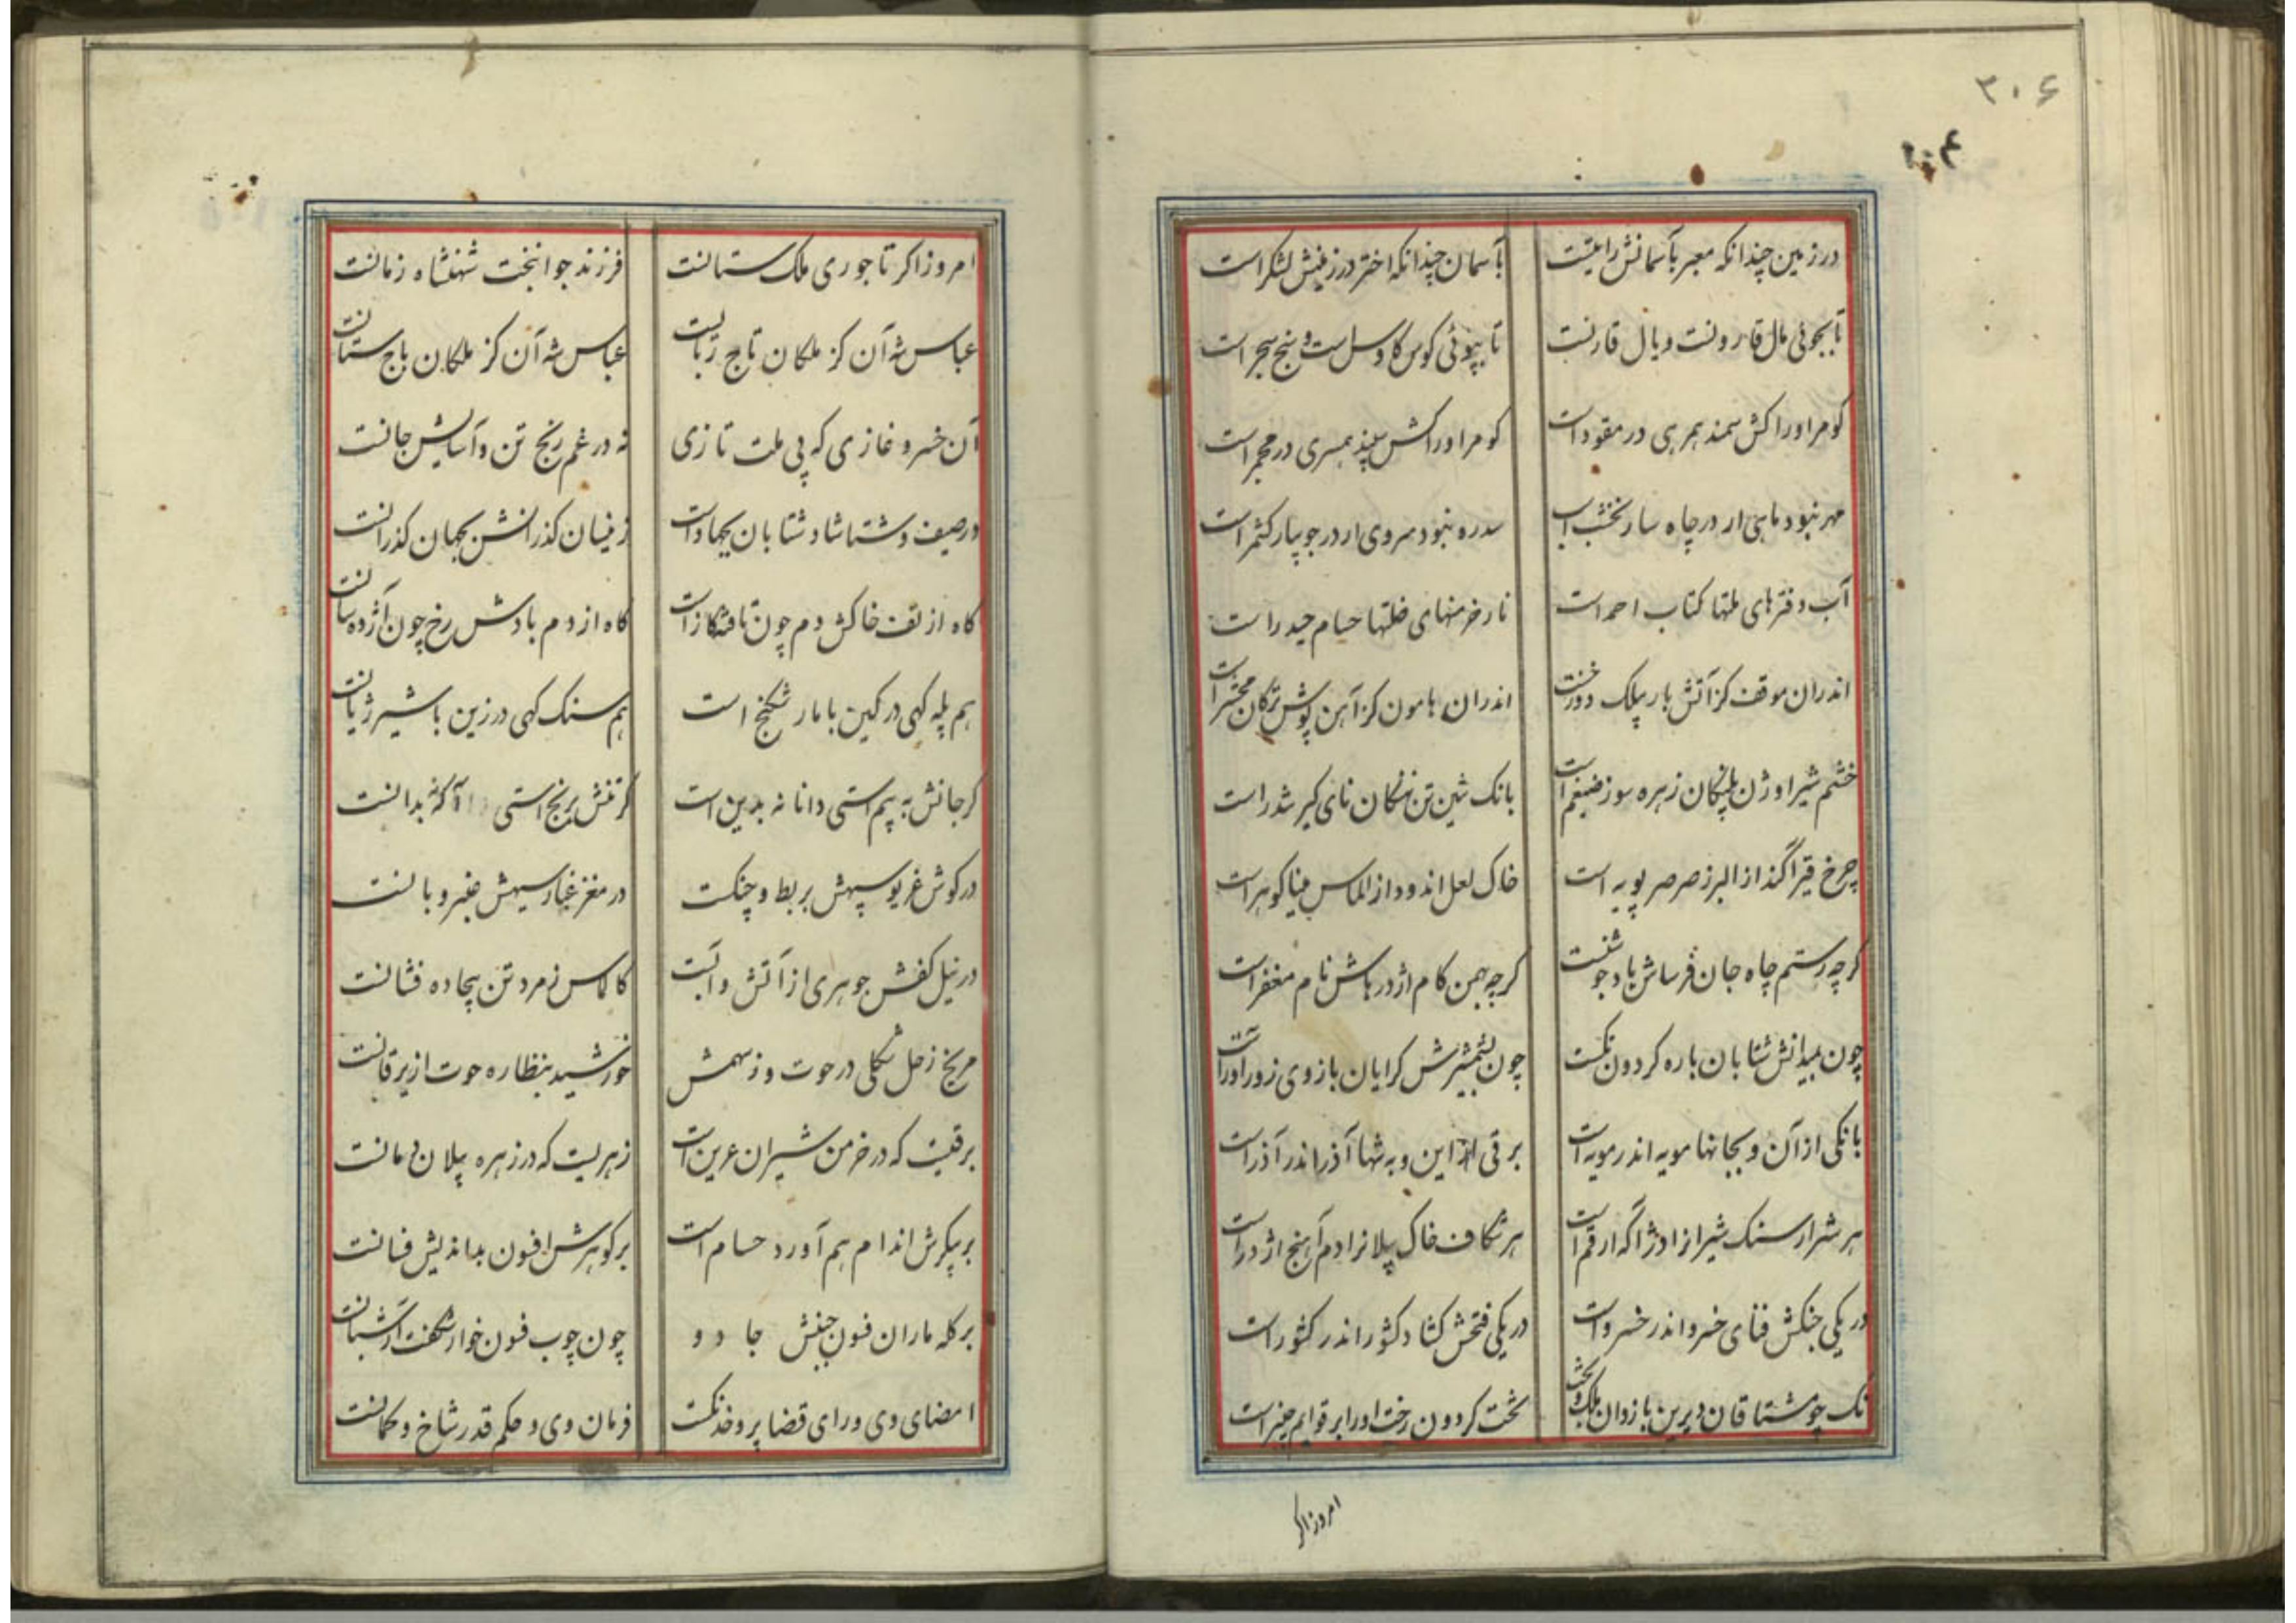 ۳۰۶
درزمین چندانکه معبر بآسمانش رایتیست بآسمان چندانکه اختر درزمینش لشکراست
تابجوئی مال قارونست وبال قارنست تابپوئی کوس کاوس است و سنجراست
کومراوراکش سمند همرهی در مقوداست کومراوراکش سپند همسری درمجمراست
مهر نبود ماهی ار در چاه سار نخشب است سدره نبود سروی ار درجویبار کشمراست
آب دفترهای ملتها کتاب احمداست نار خرمنهای ضلتها حسام حیدراست
اندران موقف کزآتش بار پیلک دوزخست اندران هامون کزآهن پوش ترکان محشراست
خشم شیراوژن پلنگان زهره سوز ضیغم است بانک تنین تن نهنکان نای کیر تندراست
چرخ قیراگند از البرز صرصر پویه است خاک لعل اندود از الماس میناکوهراست
کرچه رستم چاه جان فرساش باد جوشنست کرچه بهمن کام اژدر باش نام مغفراست
چون بمیدانش شتابان باره کردون تکست چون بشمشیرش کرایان بازوی زورآوراست
بانکی از آن و بجانها مویه اندر مویه است برقی از این و به تنها آذر اندر آذراست
هر شرار سنک شیرانرا دژآگه ارقم است هر شکاف خاک پیلانرا دم آهنج اژدراست
در یکی جنکش فنای خسرو اندر خسرواست در یکی فتحش کشاد کشور اندر کشوراست
نک چو مشتاقان دیرین بازوان ملک و بخت تخت کردون رخت اورا بر قوایم چنبراست
امروز اکر
امروز اکر تاجوری ملک ستانست فرزند جوانبخت شهنشاه زمانست
عباس شه آن کز ملکان تاج رباست عباس شه آن کز ملکان باج ستانست
آن خسرو غازی که پی ملت تازی نه درغم رنج تن و آسایش جانست
درصیف و شتا شاد شتابان بجهاداست زینسان کذرانش بجهان کذرانست
کاه از تف خاکش دم چون تافته کازاست کاه از دم بادش رخ چون آژده سانست
هم پله کهی در کمین با مار شکنج است هم سنک کهی درزین با شیر ژیانست
کر جانش به بیم استی دانا نه بدین است کرتنش برنج استی آگه نه بدانست
درکوش غریو سپهش بربط و چنکست در مغز غبار سپهش عنبر و بانست
درنیل کفش جوهری از آتش و آبست کالماس زمرد تن بیجاده فشانست
مریخ زحل شکلی درحوت و زسهمش خورشید بنظاره حوت از یرقانست
برقیست که درخرمن شیران عرین است زهریست که درزهره پیلان دمانست
برپیکرش اندام هم آورد حسام است برکوهرش افسون بداندیش فسانست
برکله ماران فسون جنبش جادو چون چوب فسون خوار شکفت آر شبانست
امضای وی و رای قضا پر و خدنکست فرمان وی و حکم قدر شاخ و کمانست